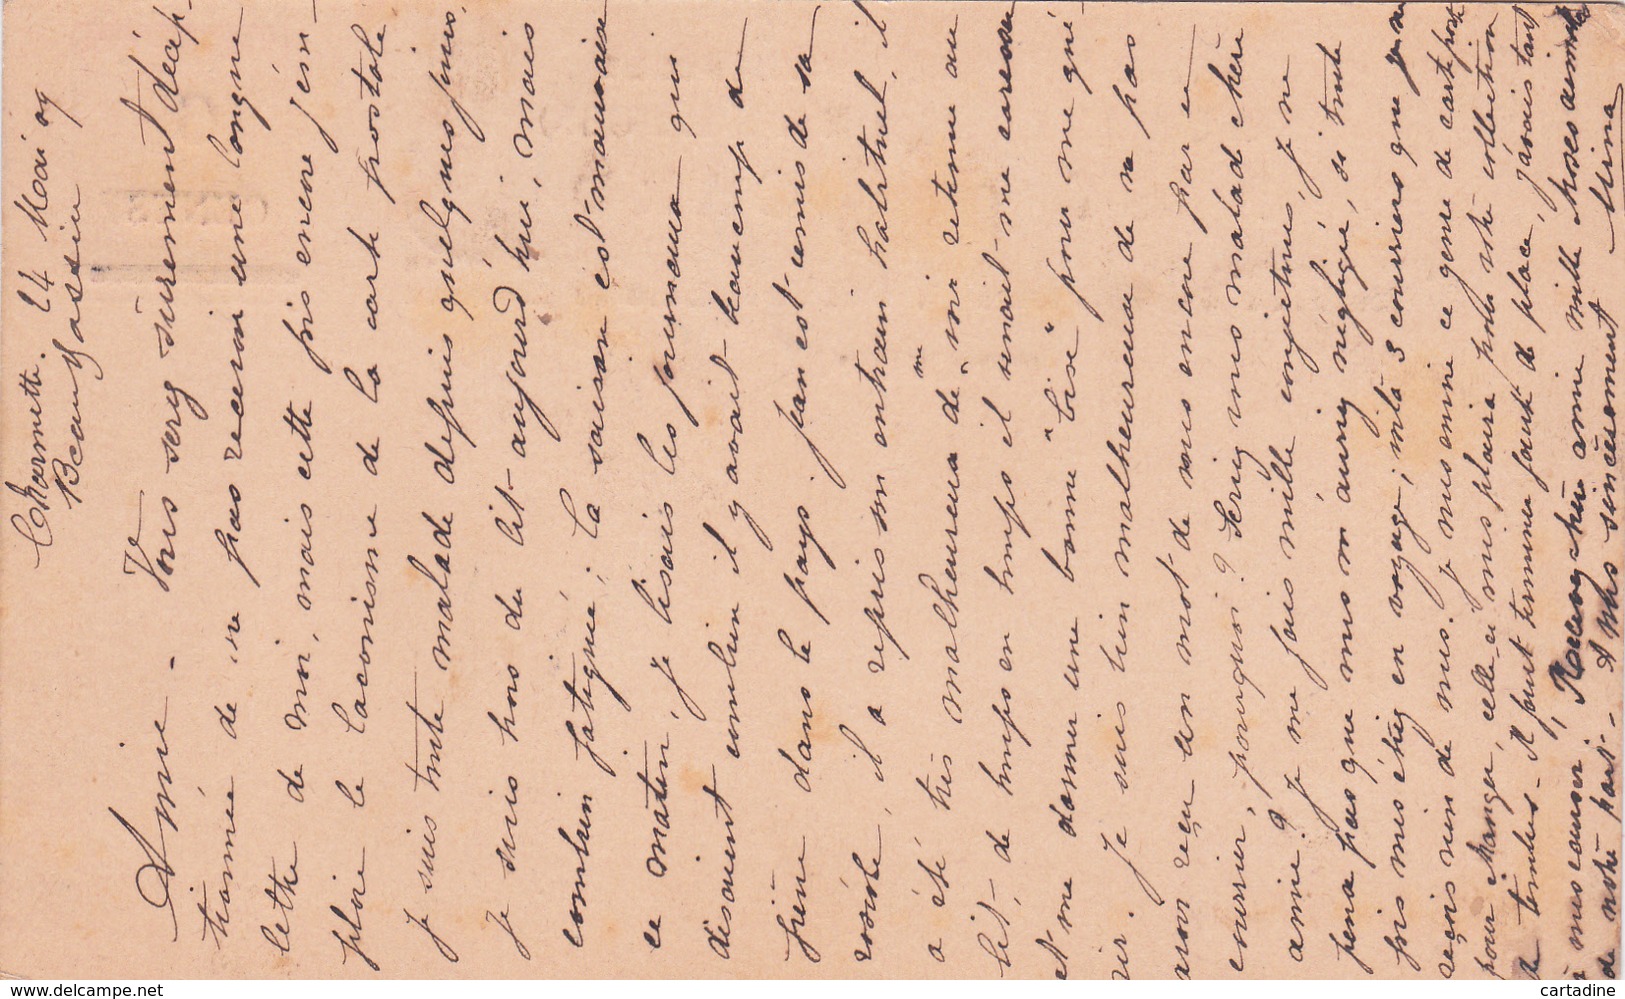 Charmette. 14 Mai 09
Beau Bassin
Amie - Vous serez sûrement décep-
tionnée de ne pas recevoir une longue
lettre de moi, mais cette fois encore j'em-
ploie le laconisme de la carte postale
Je suis toute malade depuis quelques jours.
Je suis hors du lit aujourd'hui, mais
combien fatiguée; la saison est mauvaise
ce matin, je lisais les journaux qui
disaient combien il y avait beaucoup de
fièvre dans le pays. Jean est remis de sa
, il a repris son entrain habituel, il
a été très malheureux de me "voir retenue au
lit, de temps en temps il venait me caresser
et me donner une bonne "bise" pour me gué-
rir. Je suis bien malheureuse de ne pas
avoir reçu un mot de vous encore par ce
courrier, pourquoi? Seriez vous malade chère
amie? Je me fais mille conjectures, je ne
pense pas que vous m'auriez négligé, si toute
fois vous étiez en voyage; voilà 3 courriers que je ne
reçois rien de vous. Je vous envoie ce genre de carte postale
pour changer, celle-ci vous plaira pour votre collection
de timbres - Il faut terminer faute de place, j'avais tant
à vous causer, Recevez chère amie mille choses aimables
de notre part - A vous sincèrement Mina
www.delcampe.net
cartadine